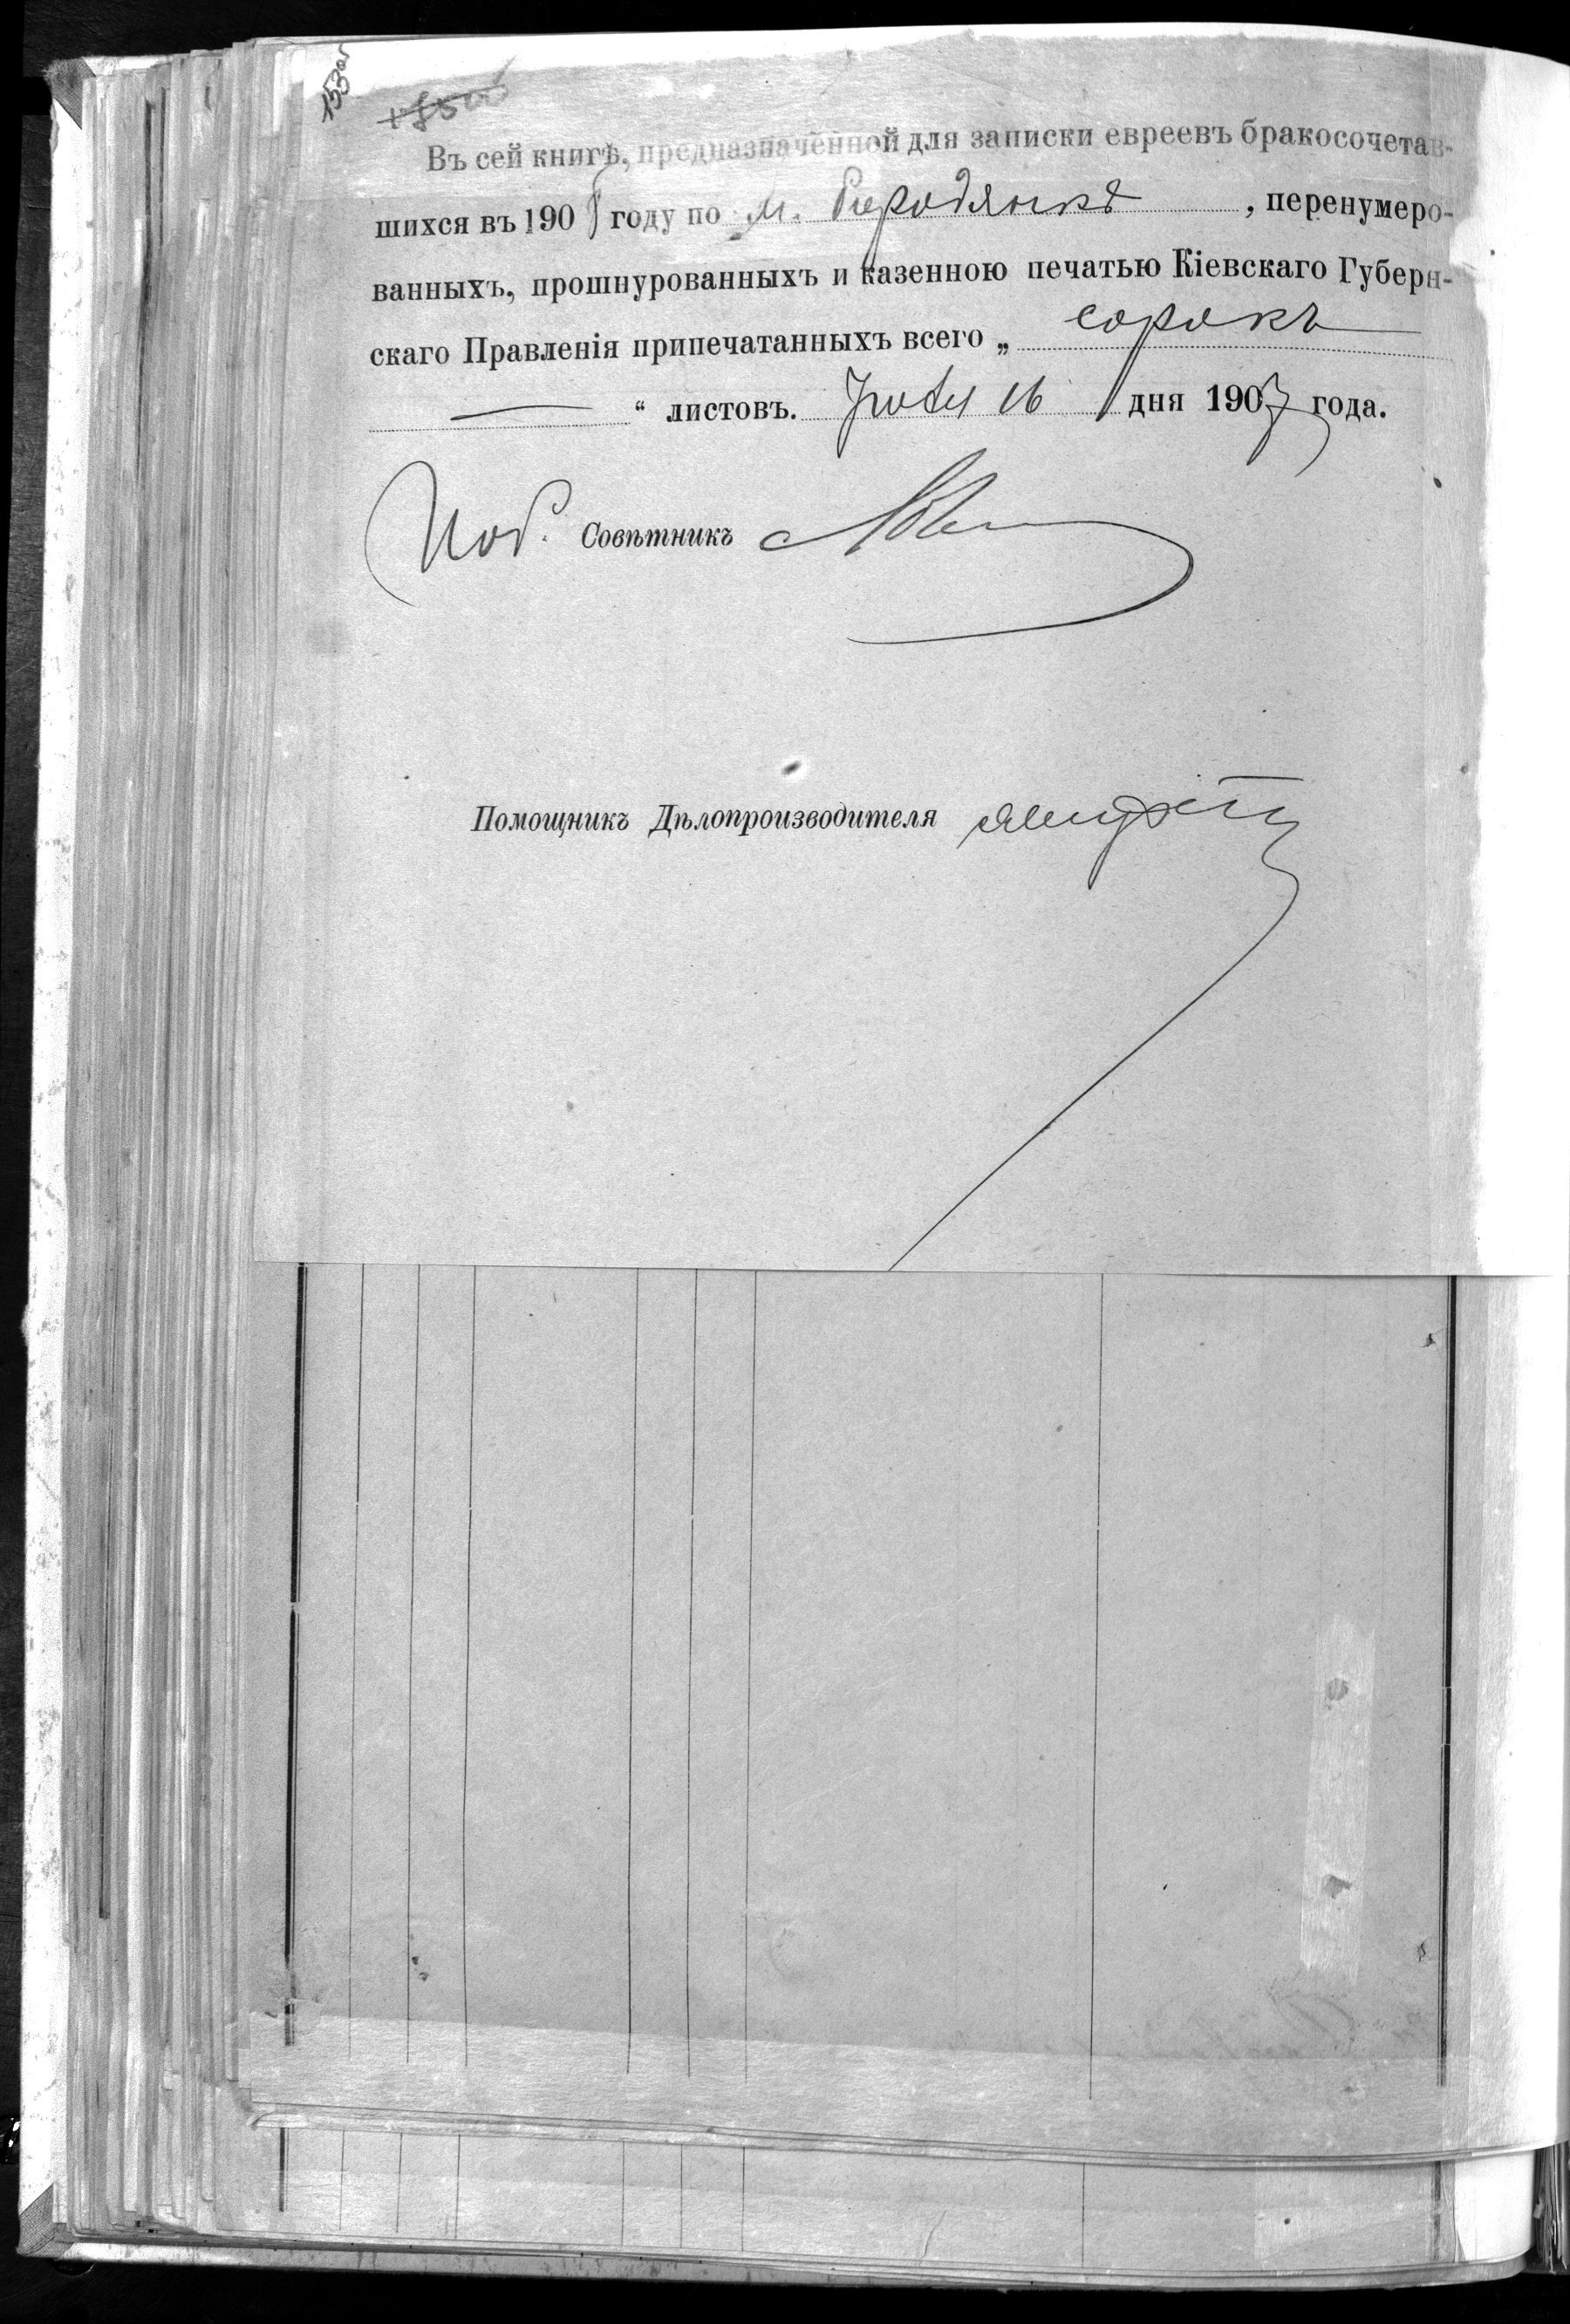 153об
Въ сей книгѣ, предназначенной для записки евреевъ бракосочетав-
шихся въ 1908 году по м. Бородянкѣ, перенумеро-
ванныхъ, прошнурованныхъ и казенною печатью Кіевскаго Губерн-
скаго Правленія припечатанныхъ всего „ сорокъ
— “ листовъ. 16 дня 1907 года.
Совѣтникъ
Помощникъ Дѣлопроизводителя